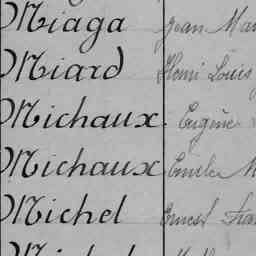 Miaga Jean
Miard Henri Louis
Michaux. Eugène
Michaux Emile
Michel Ernest